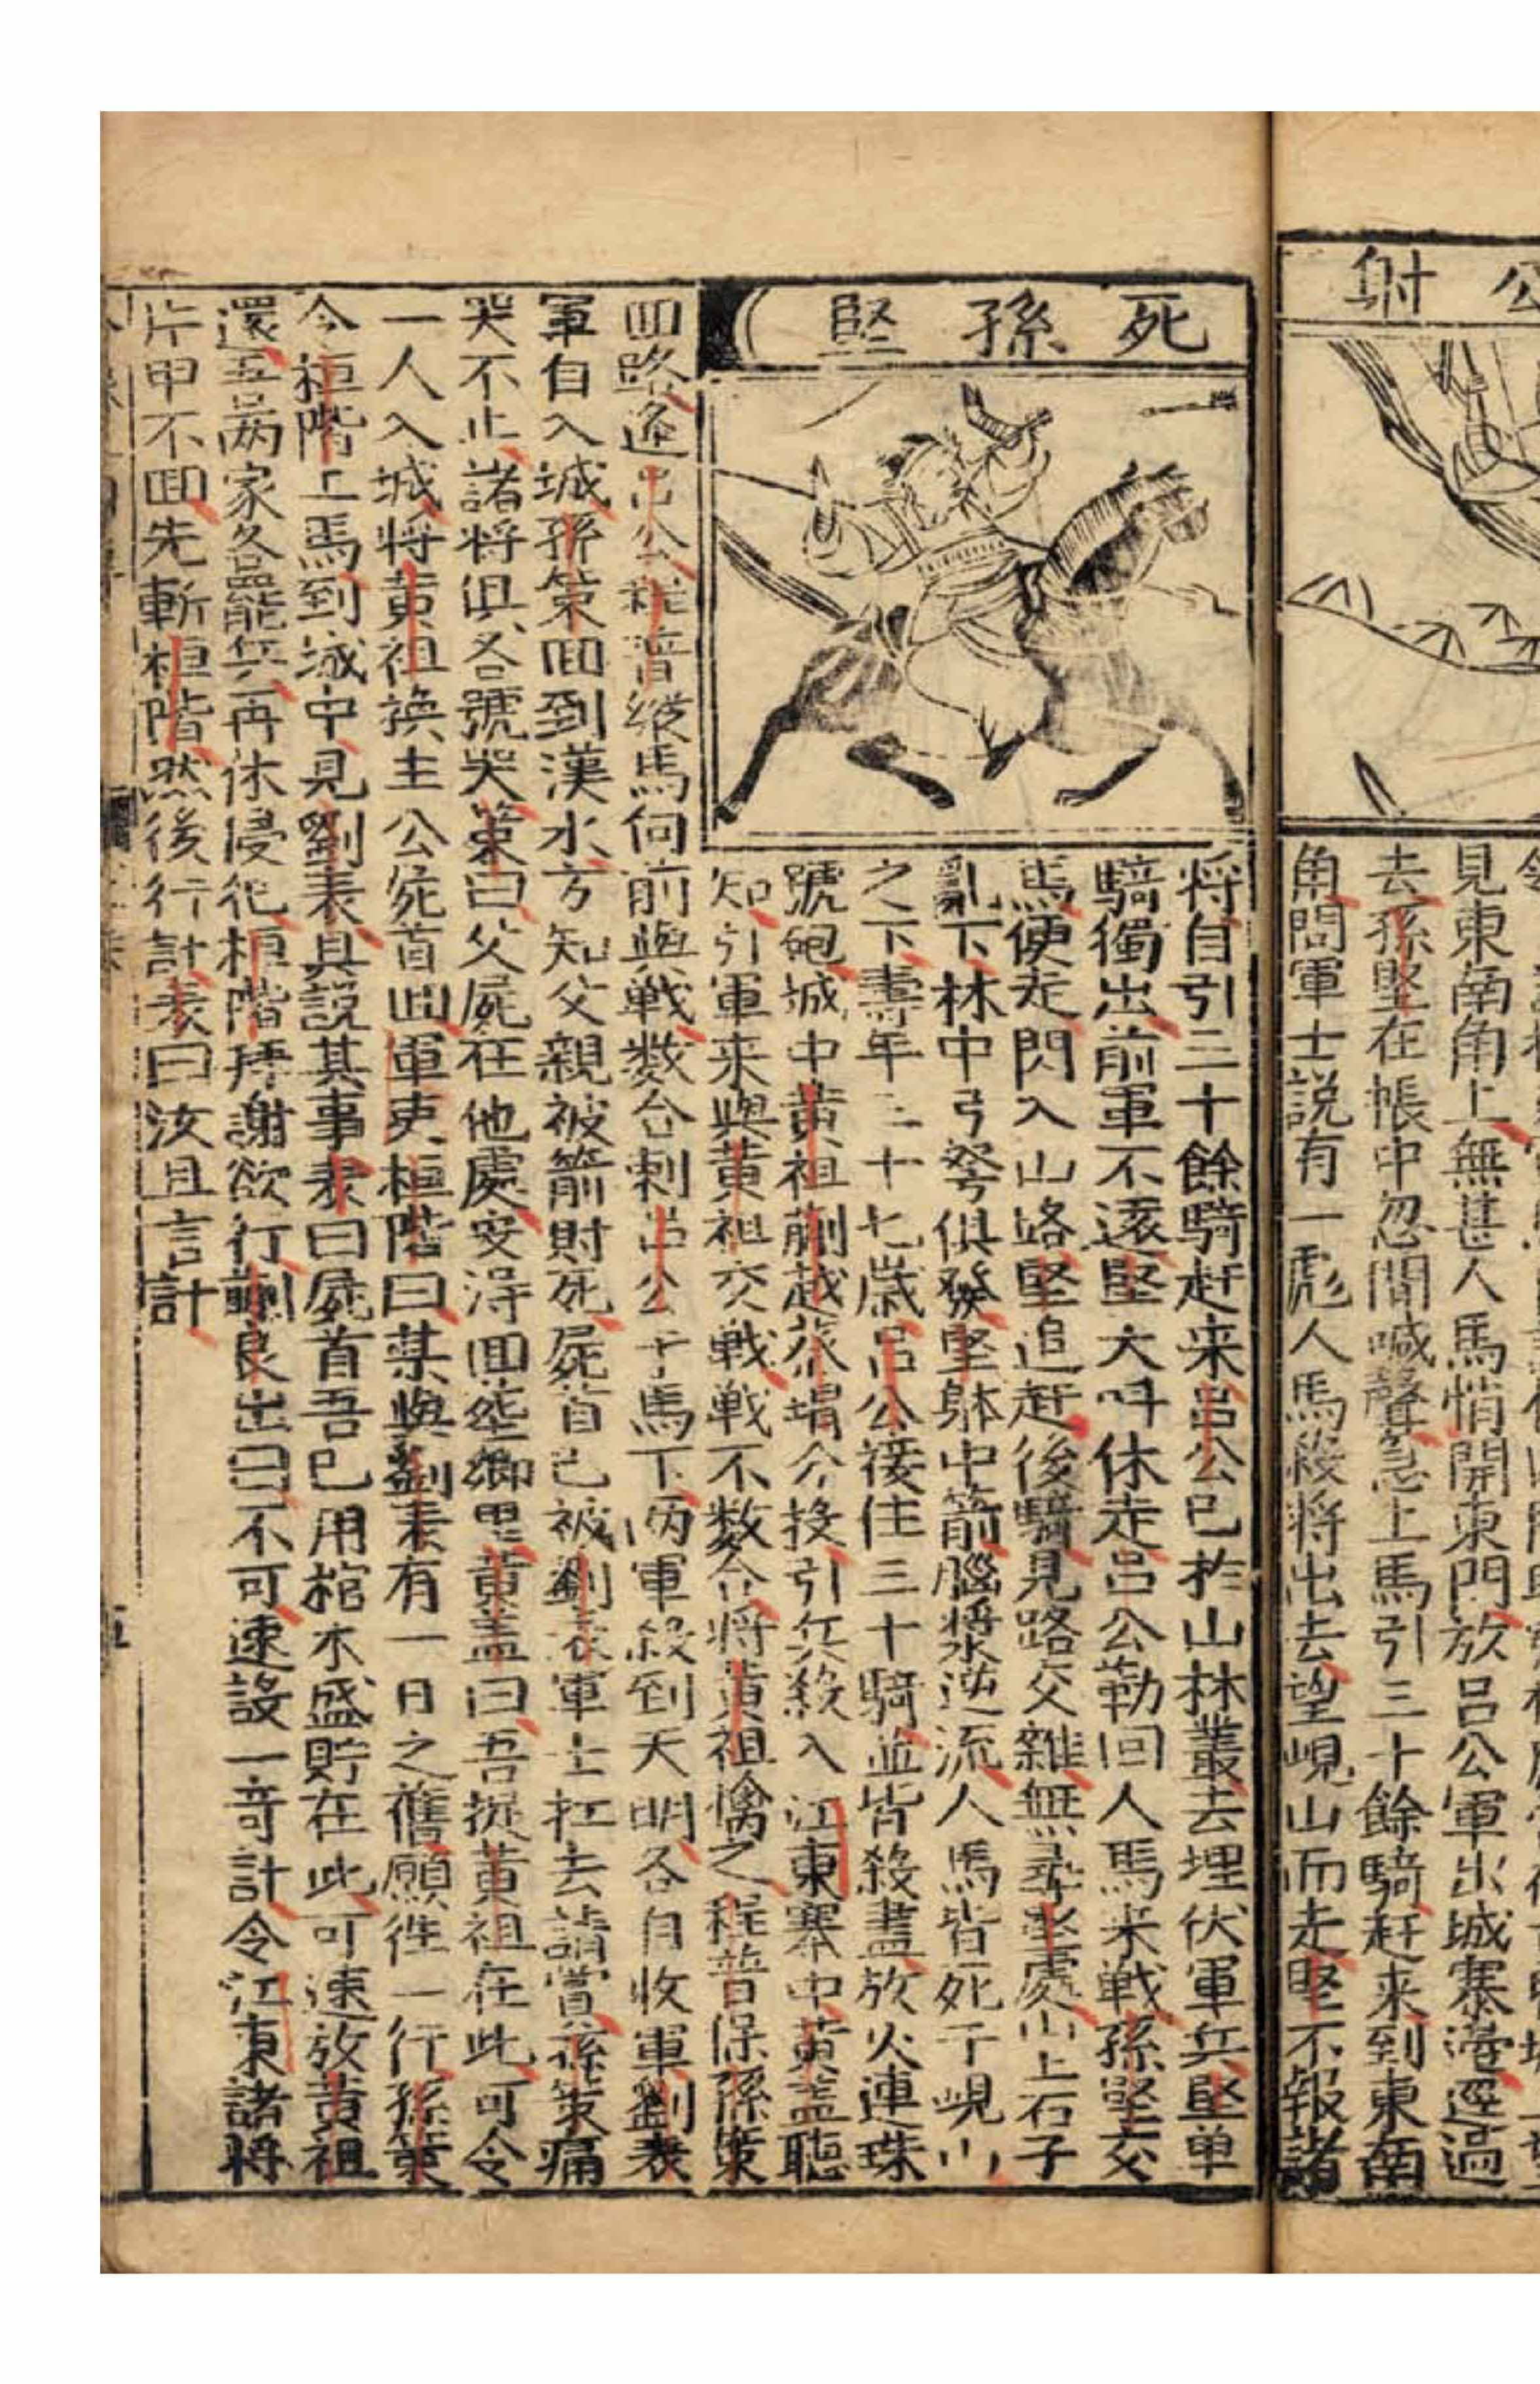 公射
見東南角上無甚人馬悄開東門放呂公軍出城寨濠逕過
去孫堅在帳中忽聞喊聲急上馬引三十餘騎赶来到東南
角問軍士説有一彪人馬殺将出去望峴山而走堅不報諸
死孫堅
将自引三十餘騎赶来呂公已於山林叢去埋伏軍兵堅单
騎獨出前軍不遠堅大呌休走呂公勒回人馬来戦孫堅交
馬便走閃入山路堅追赶後騎見路交雜無尋堅處山上石子
亂下林中弓弩俱發堅躰中箭腦漿迸流人馬皆死于峴山
之下壽年三十七歳呂公接住三十騎並皆殺盡放火連珠
號砲城中黄祖蒯越蔡瑁分投引兵殺入江東寨中黄盖聽
知引軍来與黄祖交戦戦不数合将黄祖擒之程普保孫策
囬路逢呂公程普縦馬向前與戦数合刺呂公于馬下两軍殺到天明各自收軍劉表
軍自入城孫策囬到漢水方知父親被箭射死屍首已被劉表軍士扛去請賞孫策痛
哭不止諸将俱各號哭策曰父屍在他處安得囬塟郷里黄盖曰吾捉黄祖在此可令
一人入城将黄祖換主公屍首囬軍吏桓階曰某與劉表有一日之舊願徃一行孫策
令桓階上馬到城中見劉表具説其事表曰屍首吾已用棺木盛貯在此可速放黄祖
還吾两家各罷兵再休侵犯桓階拜謝欲行蒯良出曰不可速設一奇計令江東諸将
片甲不囬先斬桓階然後行計表曰汝且言計
五